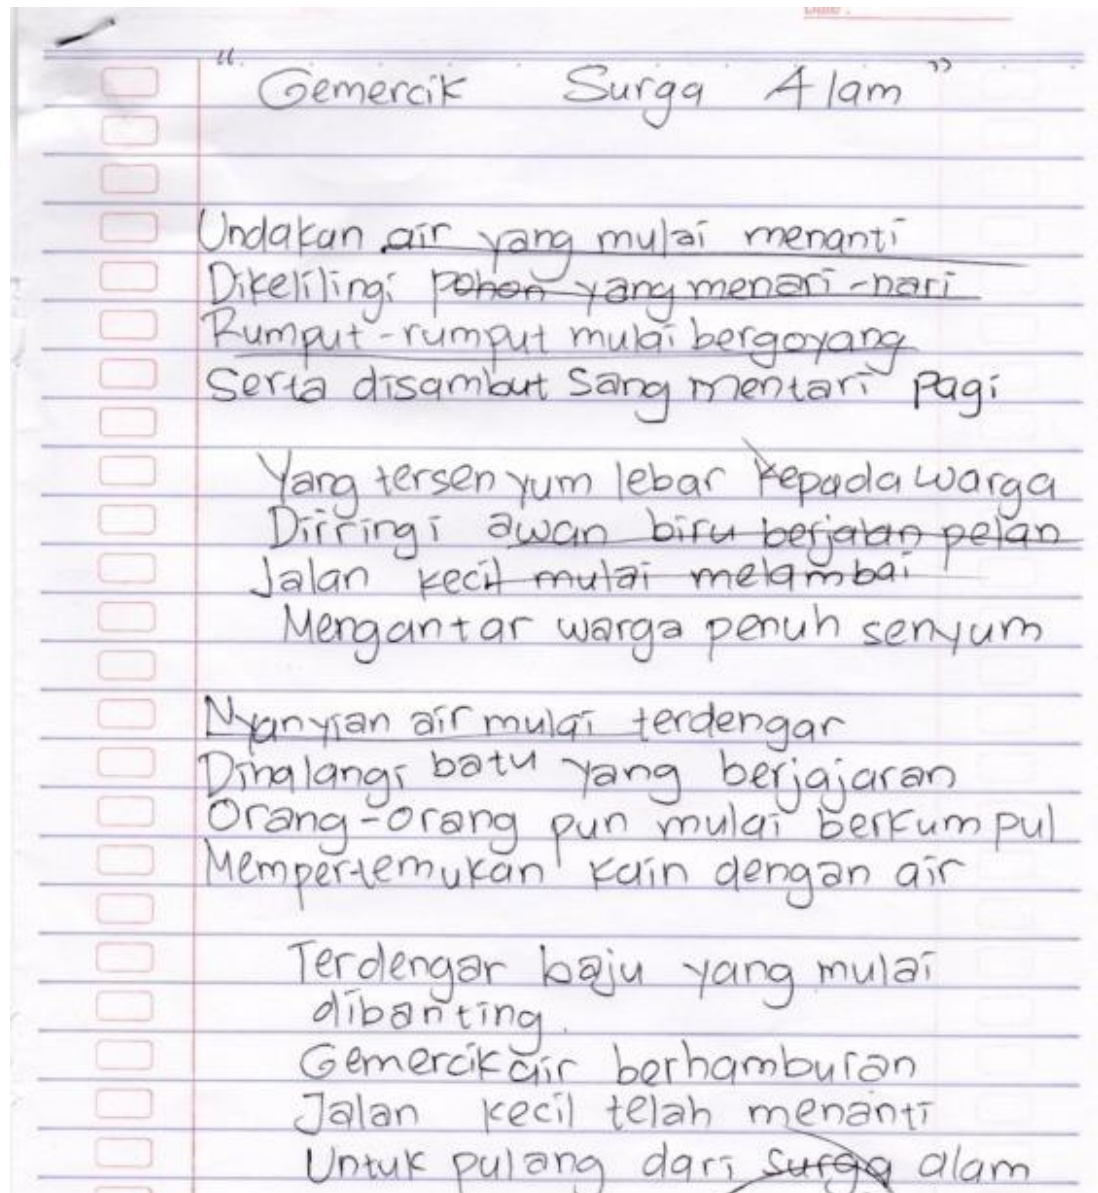 Date :
"Gemercik Surga Alam"
Undakan air yang mulai menanti
Dikelilingi pohon yang menari-nari
Rumput-rumput mulai bergoyang
Serta disambut Sang mentari pagi
Yang tersenyum lebar kepada warga
Diiringi awan biru berjalan pelan
Jalan kecil mulai melambai
Mengantar warga penuh senyum
Nyanyian air mulai terdengar
Dihalangi batu yang berjajaran
Orang-orang pun mulai berkumpul
Mempertemukan kain dengan air
Terdengar baju yang mulai
dibanting.
Gemercik air berhamburan
Jalan kecil telah menanti
Untuk pulang dari surga alam